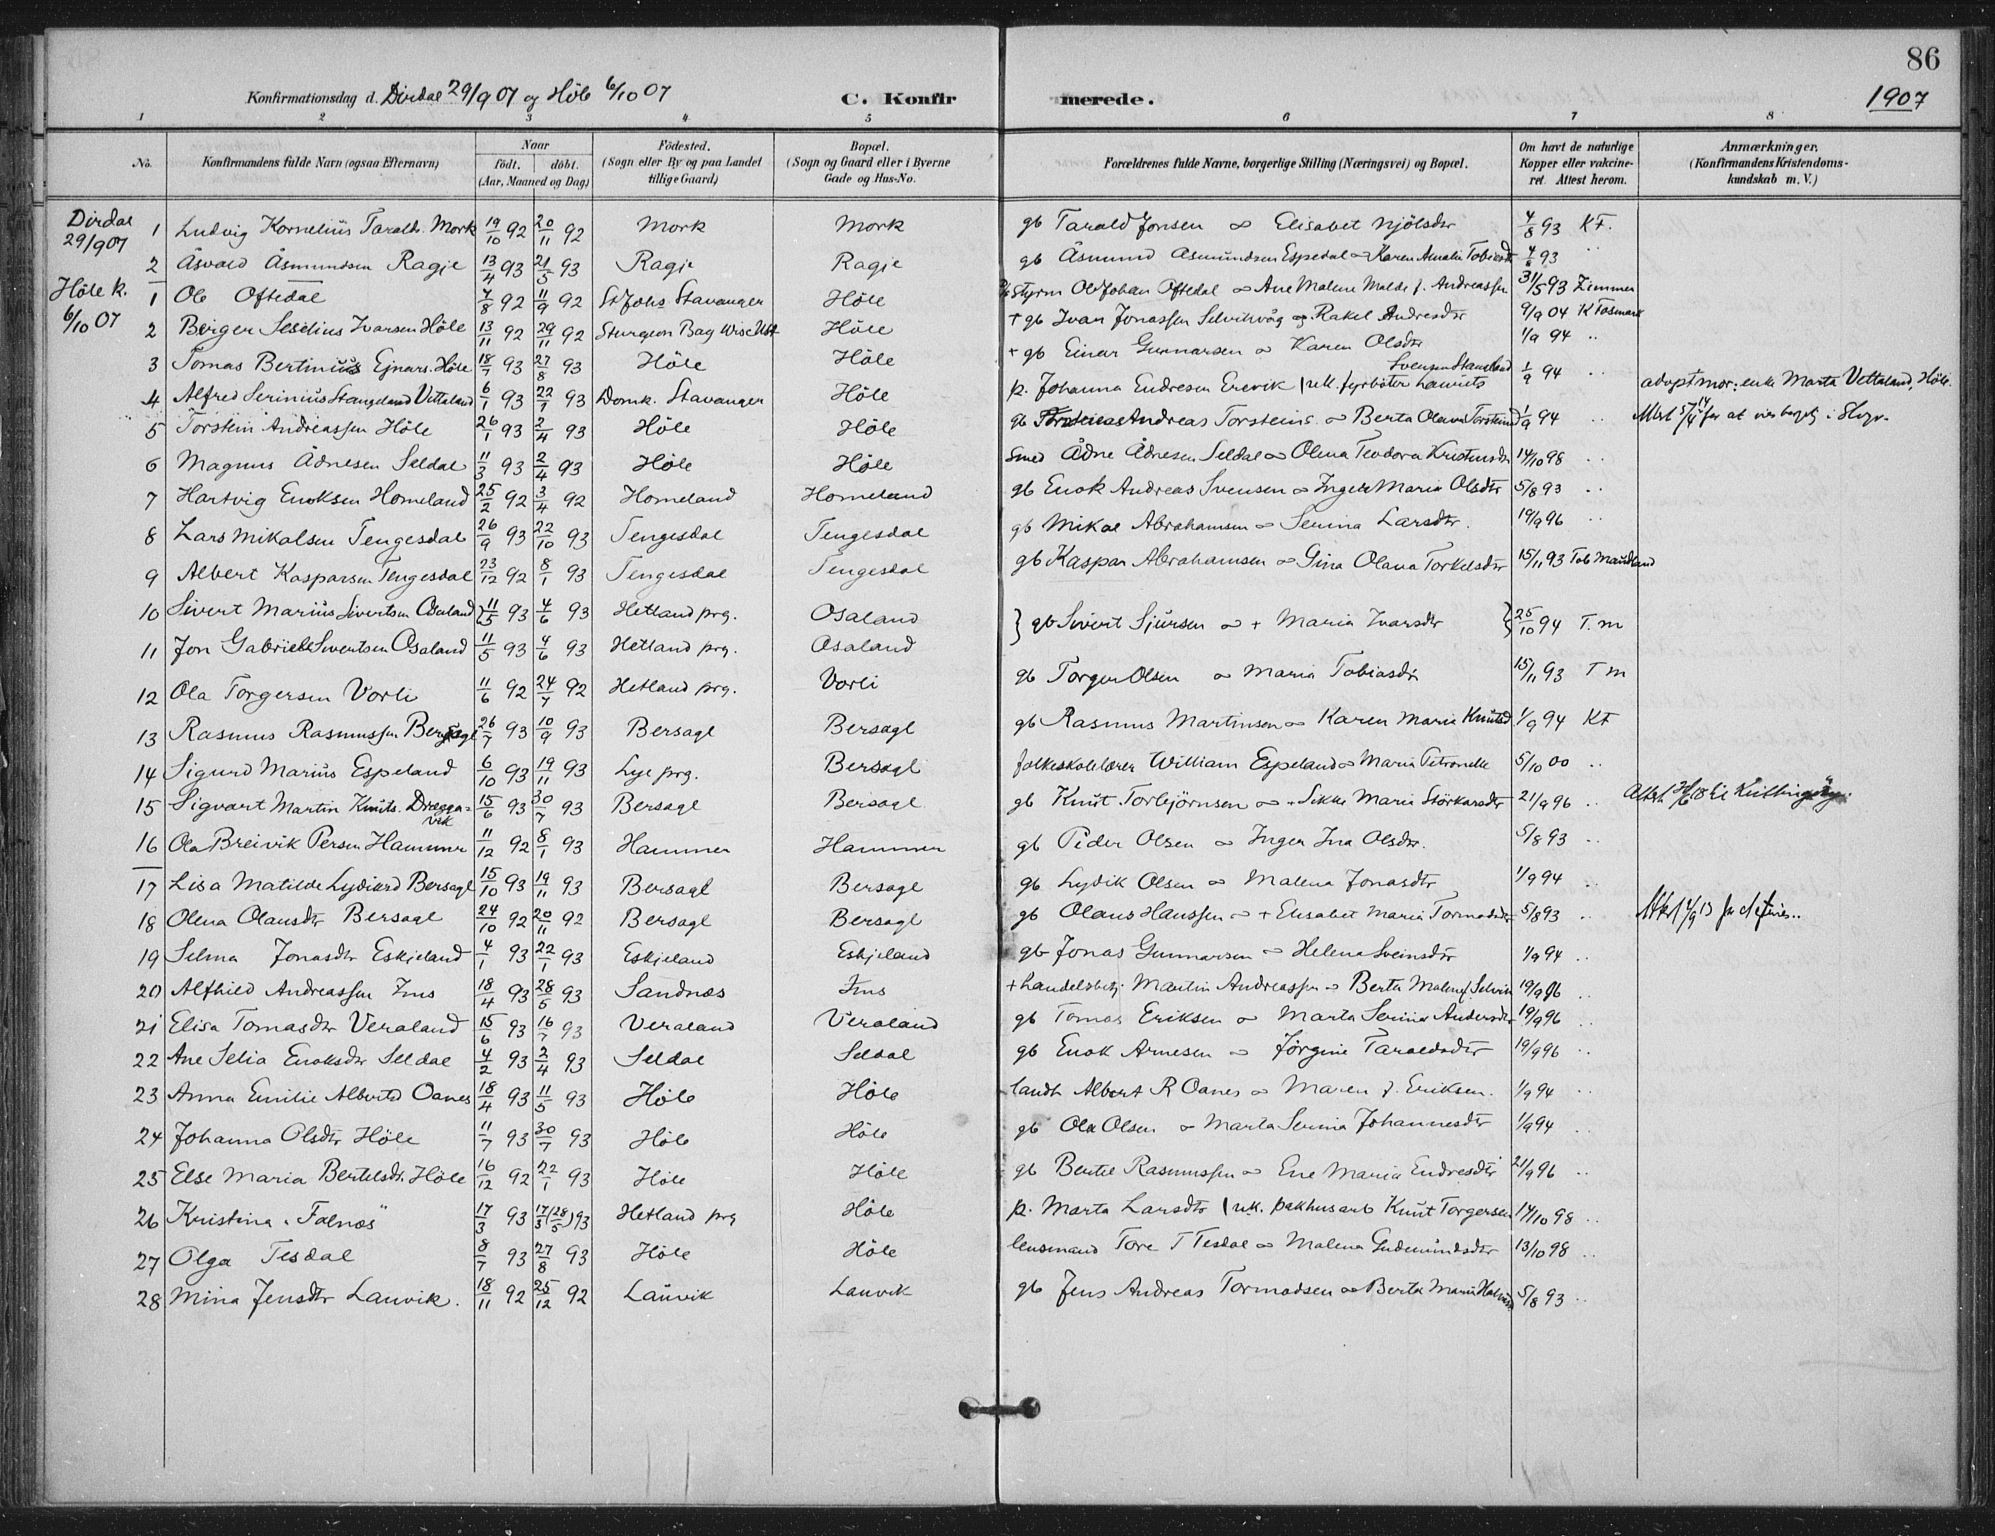 86
1907
Konfirmationsdag d. Dirdal 29/9 07 og Höle 6/10 07 C. Konfirmerede.
1 2 3 4 5 6 7 8
No. Konfirmandens fulde Navn (ogsaa Efternavn) Naar födt. döbt. (Aar, Maaned og Dag) Födested. (Sogn eller By og paa Landet tillige Gaard) Bopæl. (Sogn og Gaard eller i Byerne Gade og Hus-No. Forældrenes fulde Navne, borgerlige Stilling (Næringsvei) og Bopæl. Om havt de naturlige Kopper eller vakcineret. Attest herom. Anmærkninger. (Konfirmandens Kristendomskundskab m. V.)
Dirdal 29/9 07
1 Ludvig Kornelius Taralds. Mork 19/10 92 20/11 92 Mork Mork gb Tarald Jonsen ∞ Elisabet Njölsdtr 4/8 93 KF.
2 Åsvald Åsmundsen Ragje 13/4 93 21/5 93 Ragje Ragje gb Åsmund Asmundsen Espedal ∞ Karen Amalie Tobiasdt 4/8 93 "
Höle k. 6/10 07
1 Ole Oftedal 4/8 92 11/9 92 St Johs Stavanger Höle Styrm Ole Johan Oftedal ∞ Ane Malene Malde f. Andreassen 31/5 93 Zimmer
2 Berger Seselius Ivarsen Höle 13/11 92 29/11 92 Sturgeon Bay Wisc USt Höle + gb Ivar Jonassen Selvikvåg og Rakel Andresdtr 9/9 04 K Fosmark
3 Tomas Bertinius Ejnars. Höle 18/7 93 27/8 93 Höle Höle + gb Einar Gunnarsen ∞ Karen Olsdtr 1/9 94 ..
4 Alfred Serinius Stangeland Vettaland 6/1 93 22/1 93 Domk. Stavanger Höle p. Johanna Endresen Erevik (u.k. fyrböter Laurits Svensen Stangeland 1/9 94 .. adoptmor: enke Marta Vettaland, Höle.
5 Torstein Andreassen Höle 26/1 93 2/4 93 Höle Höle gb Andreas Torsteins. ∞ Berta Olava Torsteinsd 1/9 94 ..
6 Magnus Ådnesen Seldal 11/3 93 2/4 93 Höle Höle Smed Ådne Ådnesen Seldal ∞ Olena Teodora Kristensdtr 14/10 98 ..
7 Hartvig Enoksen Homeland 25/2 92 3/4 92 Homeland Homeland gb Enok Andreas Svensen ∞ Ingeb Maria Olsdtr 5/8 93 ..
8 Lars Mikalsen Tengesdal 26/9 93 22/10 93 Tengesdal Tengesdal gb Mikal Abrahamsen ∞ Serina Larsdtr. 19/9 96 ..
9 Albert Kasparsen Tengesdal 23/12 92 8/1 93 Tengesdal Tengesdal gb Kaspar Abrahamsen ∞ Gina Olava Torkelsdtr 15/11 93 Tob Maudland
10 Sivert Marius Sivertsen Osaland 11/5 93 4/6 93 Hetland prg. Osaland } gb Sivert Sjursen ∞ + Maria Ivarsdtr } 25/10 94 T. m
11 Jon Gabriel Sivertsen Osaland 11/5 93 4/6 93 Hetland prg. Osaland
12 Ola Torgersen Vorli 11/6 92 24/7 92 Hetland prg. Vorli gb Torger Olsen ∞ Maria Tobiasdtr 15/11 93 T m
13 Rasmus Rasmussen Bersagl 26/7 93 10/9 93 Bersagl Bersagl gb Rasmus Martinsen ∞ Karen Maria Knutsd 1/9 94 KF
14 Sigurd Marius Espeland 6/10 93 19/11 93 Lye prg. Bersagl folkeskolelærer William Espeland ∞ Maria Petronelle 5/10 00 ..
15 Sigvart Martin Knuts. Dragga-vik 15/6 93 30/7 93 Bersagl Bersagl gb Knut Torbjörnsen ∞ Sikke Maria Störkarsdtr 21/9 96 ..
16 Ola Breivik Persen Hammer 11/12 92 8/1 93 Hammer Hammer gb Peder Olsen ∞ Inger Ina Olsdtr. 5/8 93 ..
17 Lisa Matilde Lydiard Bersagl 15/10 93 19/11 93 Bersagl Bersagl gb Lydik Olsen ∞ Malena Jonasdtr 1/9 94 ..
18 Olena Olausdtr Bersagl 24/10 92 20/11 92 Bersagl Bersagl gb Olaus Hanssen ∞ + Elisabet Maria Tormodsdtr 5/8 93 ..
19 Selma Jonasdtr Eskjeland 4/1 93 22/1 93 Eskjeland Eskjeland gb Jonas Gunnarsen ∞ Helena Sveinsdtr 1/9 94 ..
20 Alfhild Andreassen Ims 18/4 93 28/5 93 Sandnæs Ims + handelsbetj. Martin Andreassen ∞ Berta Malene f. Selvik 19/9 96 ..
21 Elisa Tomasdtr Veraland 15/6 93 16/7 93 Veraland Veraland gb Tomas Eriksen ∞ Marta Serina Andersdtr 19/9 96 ..
22 Ane Selia Enoksdtr Seldal 4/2 93 2/4 93 Seldal Seldal gb Enok Arnesen ∞ Jörgine Taraldsdtr 19/9 96 ..
23 Anna Emilie Albertsd Oanes 18/4 93 11/5 93 Höle Höle landh Albert R Oanes ∞ Maren f. Eriksen. 1/9 94 ..
24 Johanna Olsdtr Höle 11/7 93 30/7 93 Höle Höle gb Ola Olsen ∞ Marta Serina Johannesdtr 1/9 94 ..
25 Else Maria Bertelsdtr. Höle 16/12 92 22/1 93 Höle Höle gb Bertel Rasmussen ∞ Ene Maria Endresdtr 21/9 96 ..
26 Kristina "Falnæs" 17/3 93 17/3 (28/5) 93 Hetland prg Höle p. Marta Larsdtr (u.k. pakhusarb Knut Torgersen 14/10 98 ..
27 Olga Tesdal 8/7 93 27/8 93 Höle Höle lensmand Tore T Tesdal ∞ Malena Gudmundsdtr 13/10 98 ..
28 Mina Jensdtr Lauvik. 18/11 92 25/12 92 Lauvik Lauvik gb Jens Andreas Tormodsen ∞ Berta Maria 5/8 93 ..